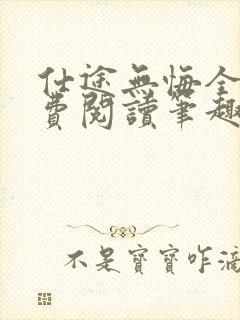 仕途無悔全
費閱讀筆趣
不是寶寶咋滴